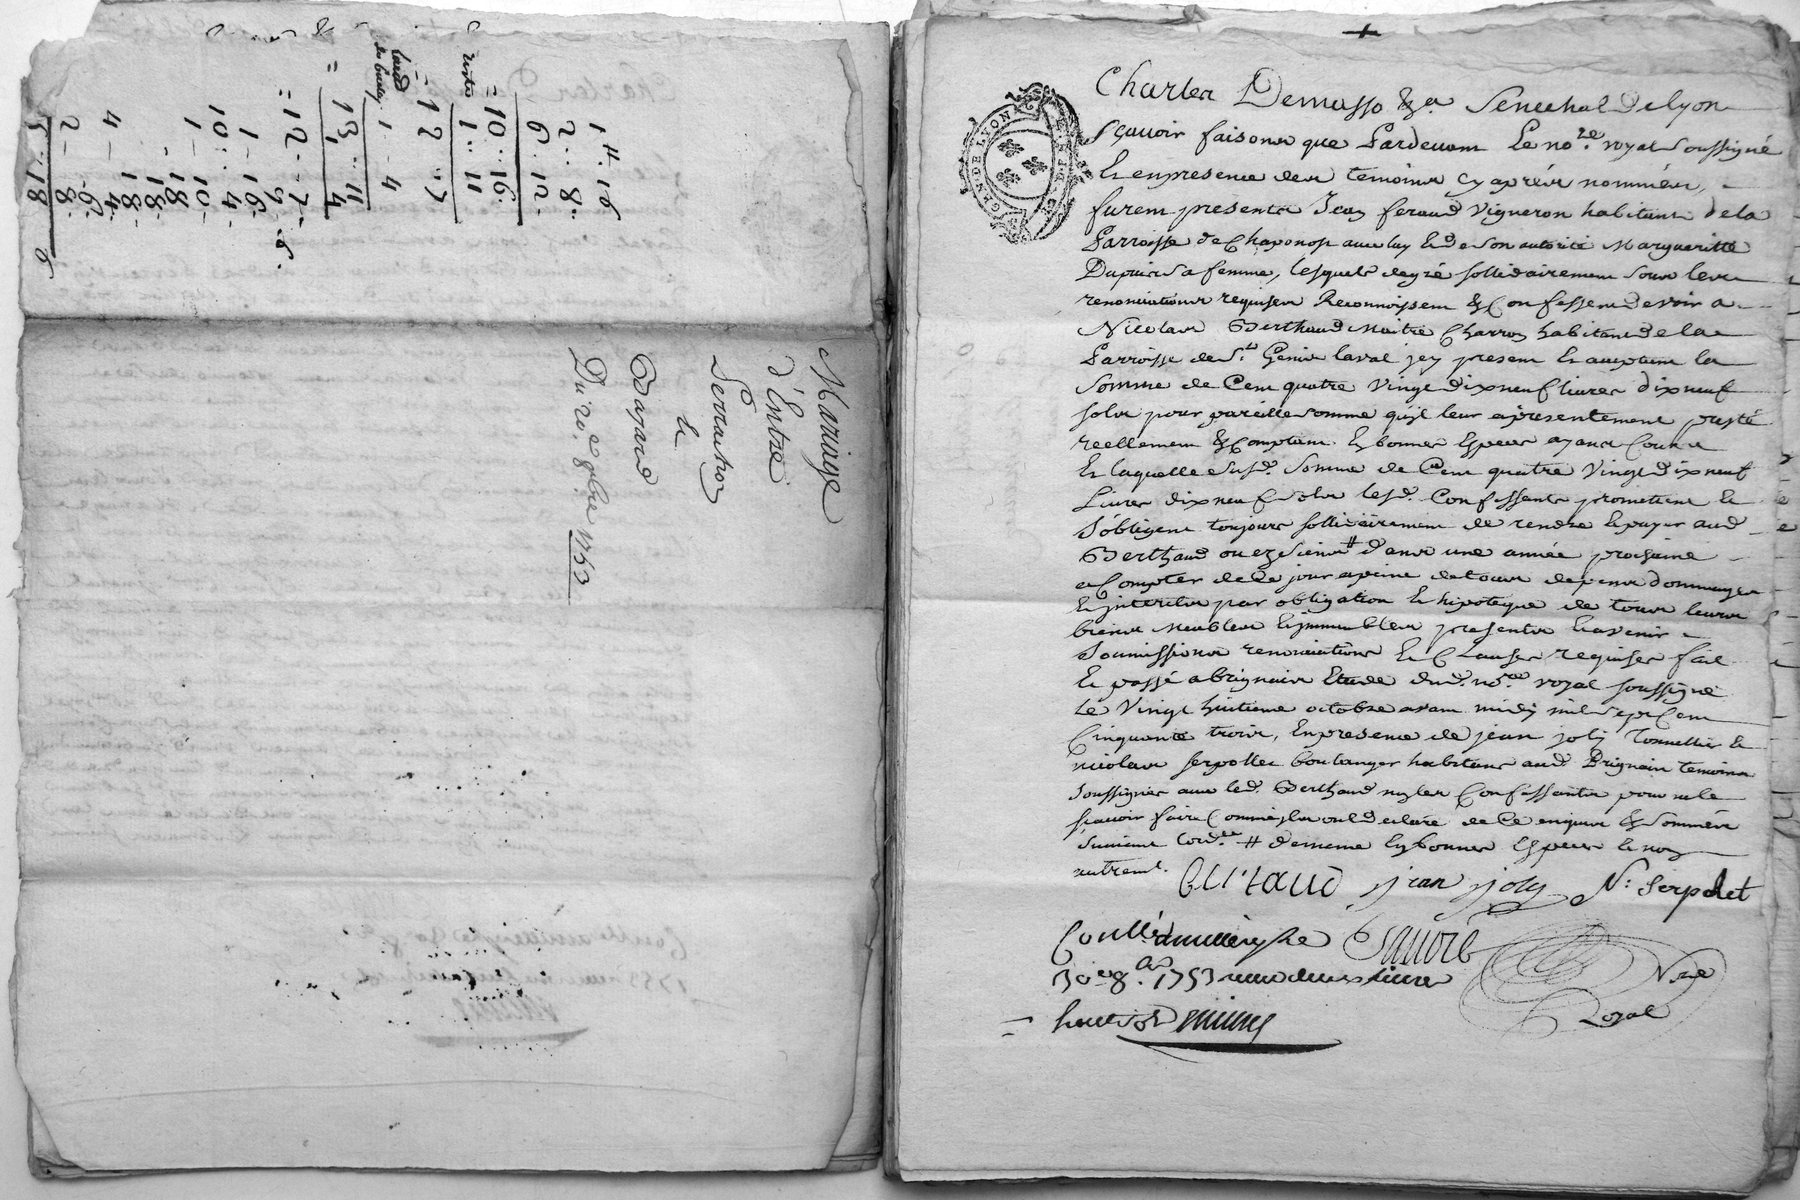 1 ₶ 16
2 .. 8.
6 .. 12.
= 10 .. 16.
restes 1 .. 11
= 12 .. 7
1 .. 4
= 13 .. 11
4
= 12 .. 7 .. 6.
1 - 16.
10 .. 4.
1 - 10 -
18
= 18.
4 - 18.
4.
2 - 8.
Mariage
d'Entre
Serraihon
&
Bazand
Du 20.e 8bre 1753
Charles Demasso &a. Senechal de Lyon
sçavoir faisons que Pardevant Le no.re royal soussigné
Et en presence des temoins cy aprés nommés,
furent presents Jean feraud vigneron habitant de la
Parroisse de Chaponost avec luy & de son autorité Margueritte
Dupuis sa femme, lesquels de gré sollidairement sous les
renonciations requises Reconnoissent & Confessent devoir a
Nicolas Berthaud Maitre Charron habitant de la
Parroisse de St. Genis laval icy present & acceptant la
somme de Cent quatre vingt dix neuf livres dix neuf
sols pour pareille somme qu'il leur a presentement presté
reellement & Comptant En bonnes Especes ayant Cours
Et laquelle susd. somme de Cent quatre Vingt dix neuf
Livres dix neuf sols lesd. Confessants promettent &
s'obligent toujours sollidairement de rendre & payer aud.
Berthaud ou es siens # dans une année prochaine
a Compter de Ce jour a peine de tous depens dommages
& interests par obligation & hipoteque de tous leurs
biens Meubles & immeubles presents & avenir
Soumissions renonciations & Clauses requises fait
& passé a brignais Etude dud. no.re royal soussigné
Le Vingt huitieme octobre avant midy mil sept Cent
Cinquante trois, En presence de jean joly Tonnellier &
nicolas serpollet boulanger habitants aud. Brignais temoins
soussignes avec led. Berthaud non les Confessants pour ne le
sçavoir faire Comme ils ont declaré de Ce enquis & sommés
suivant l'ord.ce # de meme En bonnes Especes & non
autrem.t
BERTAUD jean joly N: Serpolet
Conllé a
30e 8.bre 1753 reçu deux livres
huit sols
Nre
Royal